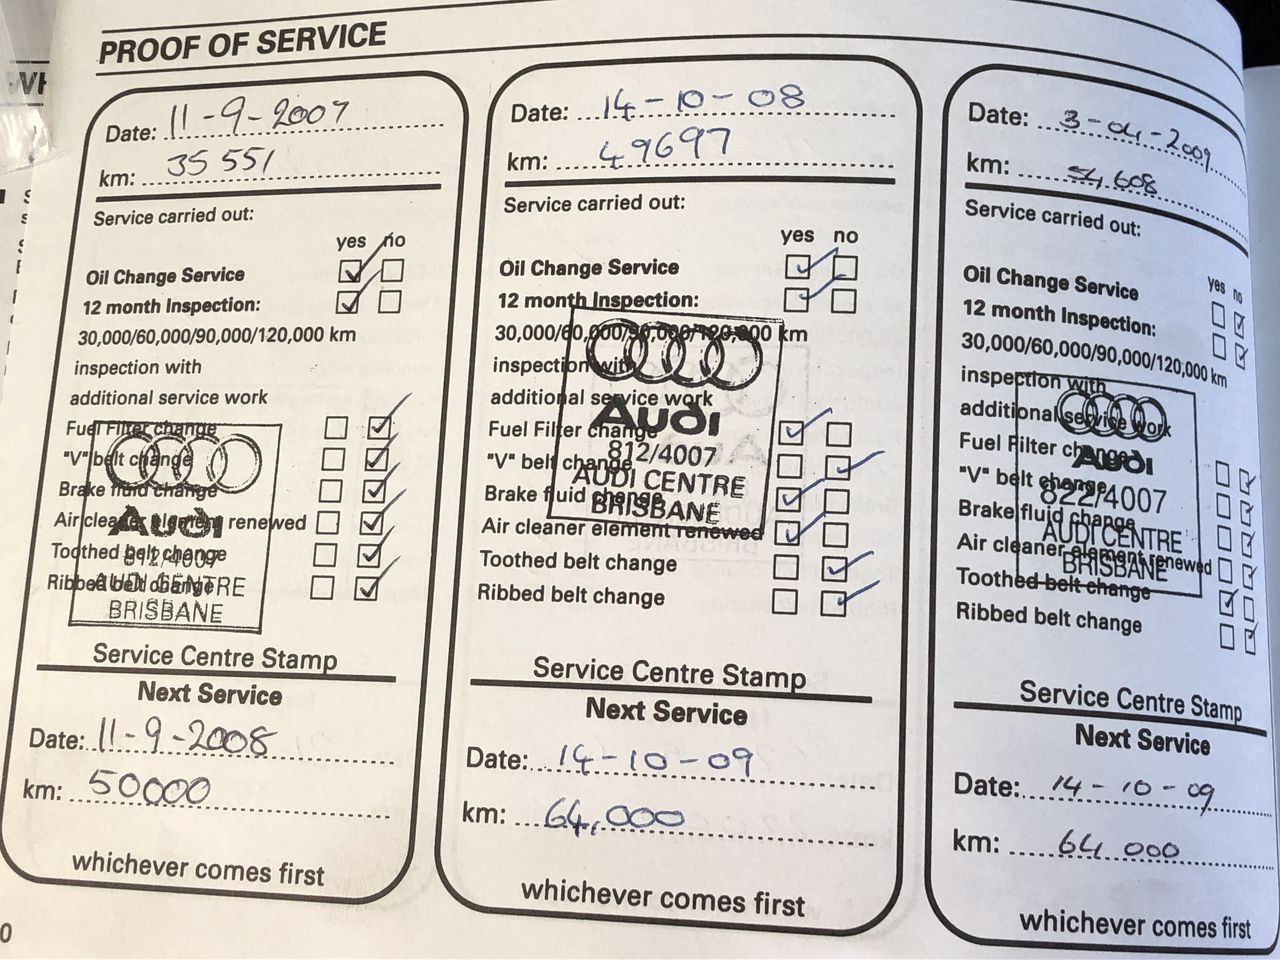 PROOF OF SERVICE
Date: 11-9-2007
km: 35 551
Service carried out:
yes no
Oil Change Service
12 month Inspection:
30,000/60,000/90,000/120,000 km
inspection with
additional service work
Fuel Filter change
"V" belt change
Brake fluid change
Air cleaner element renewed
Toothed belt change
Ribbed belt change
Audi
812/4007
AUDI CENTRE
BRISBANE
Service Centre Stamp
Next Service
Date: 11-9-2008
km: 50000
whichever comes first
Date: 14-10-08
km: 49697
Service carried out:
yes no
Oil Change Service
12 month Inspection:
30,000/60,000/90,000/120,000 km
inspection with
additional service work
Fuel Filter change
"V" belt change
Brake fluid change
Air cleaner element renewed
Toothed belt change
Ribbed belt change
Audi
812/4007
AUDI CENTRE
BRISBANE
Service Centre Stamp
Next Service
Date: 14-10-09
km: 64,000
whichever comes first
Date: 3-04-2009
km: 54,608
Service carried out:
yes no
Oil Change Service
12 month Inspection:
30,000/60,000/90,000/120,000 km
inspection with
additional service work
Fuel Filter change
"V" belt change
Brake fluid change
Air cleaner element renewed
Toothed belt change
Ribbed belt change
Audi
822/4007
AUDI CENTRE
BRISBANE
Service Centre Stamp
Next Service
Date: 14-10-09
km: 64 000
whichever comes first
0